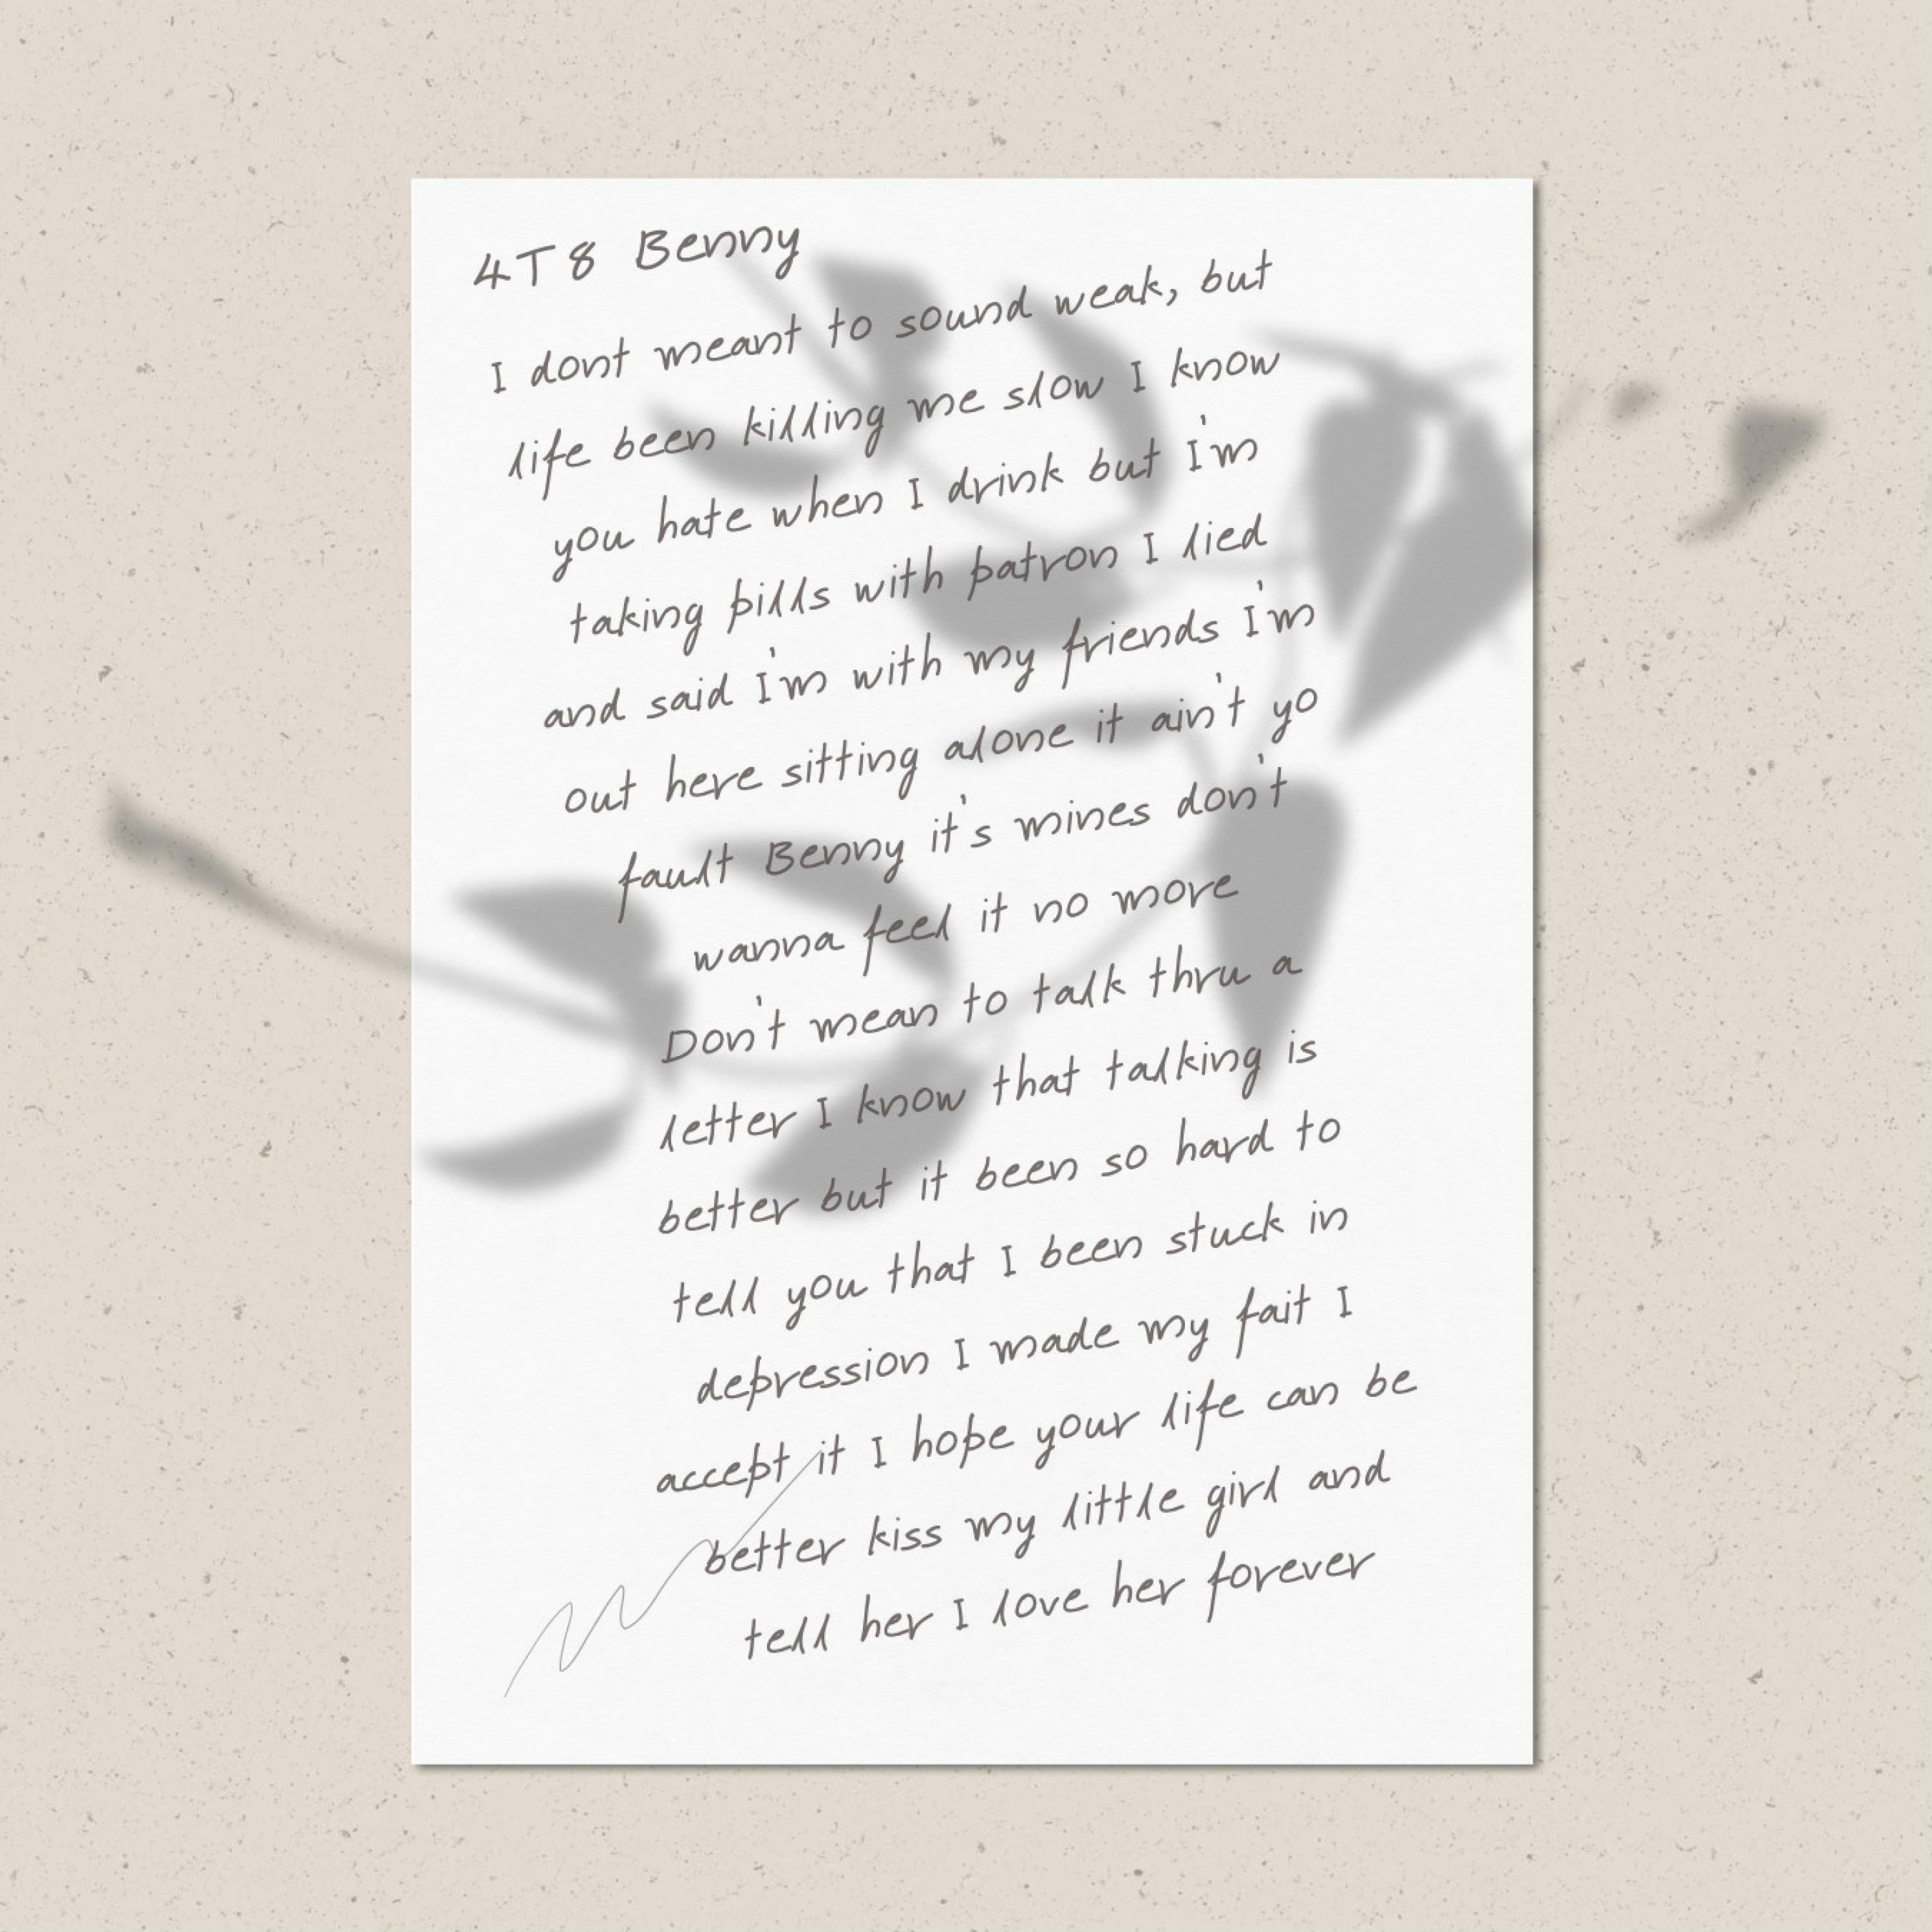 4T8 Benny
I dont meant to sound weak, but
life been killing me slow I know
you hate when I drink but I'm
taking pills with patron I lied
and said I'm with my friends I'm
out here sitting alone it ain't yo
fault Benny it's mines don't
wanna feel it no more
Don't mean to talk thru a
letter I know that talking is
better but it been so hard to
tell you that I been stuck in
depression I made my fait I
accept it I hope your life can be
better kiss my little girl and
tell her I love her forever